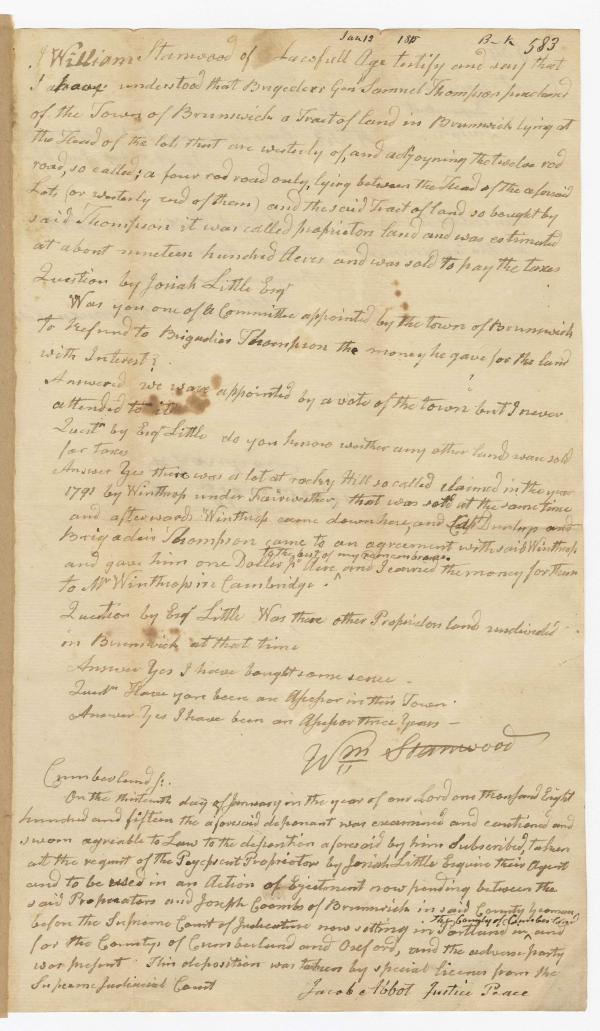 Jan 13 1815 B-k 583
I William Stanwood of Lawfull Age testify and say that
I have understood that Brigedeer Gen Samuel Thompson purchased
of the Town of Brunswick a Tract of land in Brunswick lying at
the Head of the lots that are westerly of, and adjoyning the twelve rod
road, so called; a four rod road only, lying between the Head of the aforesaid
Lots (or westerly end of them) and the said Tract of land so bought by
said Thompson it was called proprietors land and was estimated
at about nineteen hundred Acres and was sold to pay the taxes
Question by Josiah Little Esqr
Was you one of a Committee appointed by the town of Brunswick
to Refund to Brigadier Thompson the money he gave for the land
with Interest?
Answered we ware appointed by a vote of the town but I never
attended to it
Questn by Esqr Little do you know weither any other land was sold
for taxes
Answer Yes there was a lot at rocky Hill so called claimed in the year
1791 by Winthrop under Fairweather, that was sold at the same time
and afterwards Winthrop came down here, and Capt Dunlap and
Brigadeir Thompson came to an agreement with said Winthrop
to the best of my remembrance
and gave him one Doller pr Acre, and I carried the money for them
to Mr Winthrop in Cambridge. ^
Question by Esqr Little Was there other Proprietors land undivided
in Brunswick at that time
Answer Yes I have bought some sence -
Questn Have you been an Assessor in this Town
Answer Yes I have been an Assessor three Years -
Wm Stanwood
Cumberland ss.
On the thirteenth day of January in the year of our Lord one thousand Eight
hundred and fifteen the aforesaid deponant was examined and cautioned and
sworn agreable to Law to the deposition aforesaid by him Subscribed, taken
at the request of the Pejepscot Proprietors by Josiah Little Esquire their Agent
and to be used in an Action of Ejectment now pending between the
said Proprietors and Joseph Coombs of Brunswick in said County yeoman
before the Supreme Court of Judicature now setting in Portland in ^ and
the County of Cumberland
for the Countys of Cumberland and Oxford, and the adverse party
was present This deposition was taken by special licence from the
Supreme Judiacial Court
Jacob Abbot Justice Peace